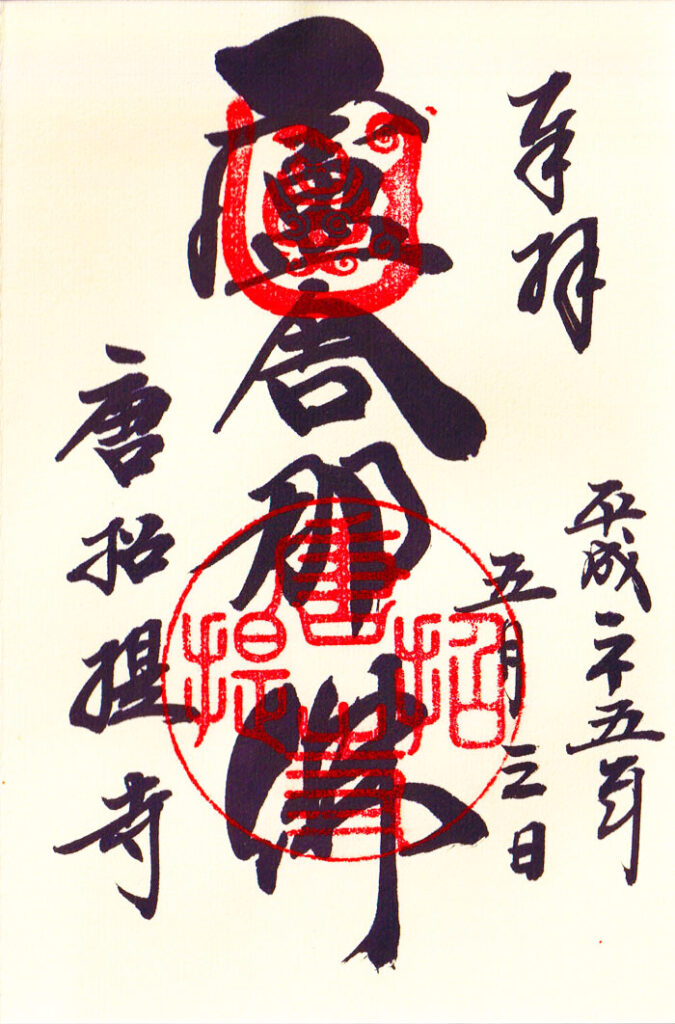 奉拝
平成二十五年
五月三日
盧舎那佛
唐招提寺
唐招提寺